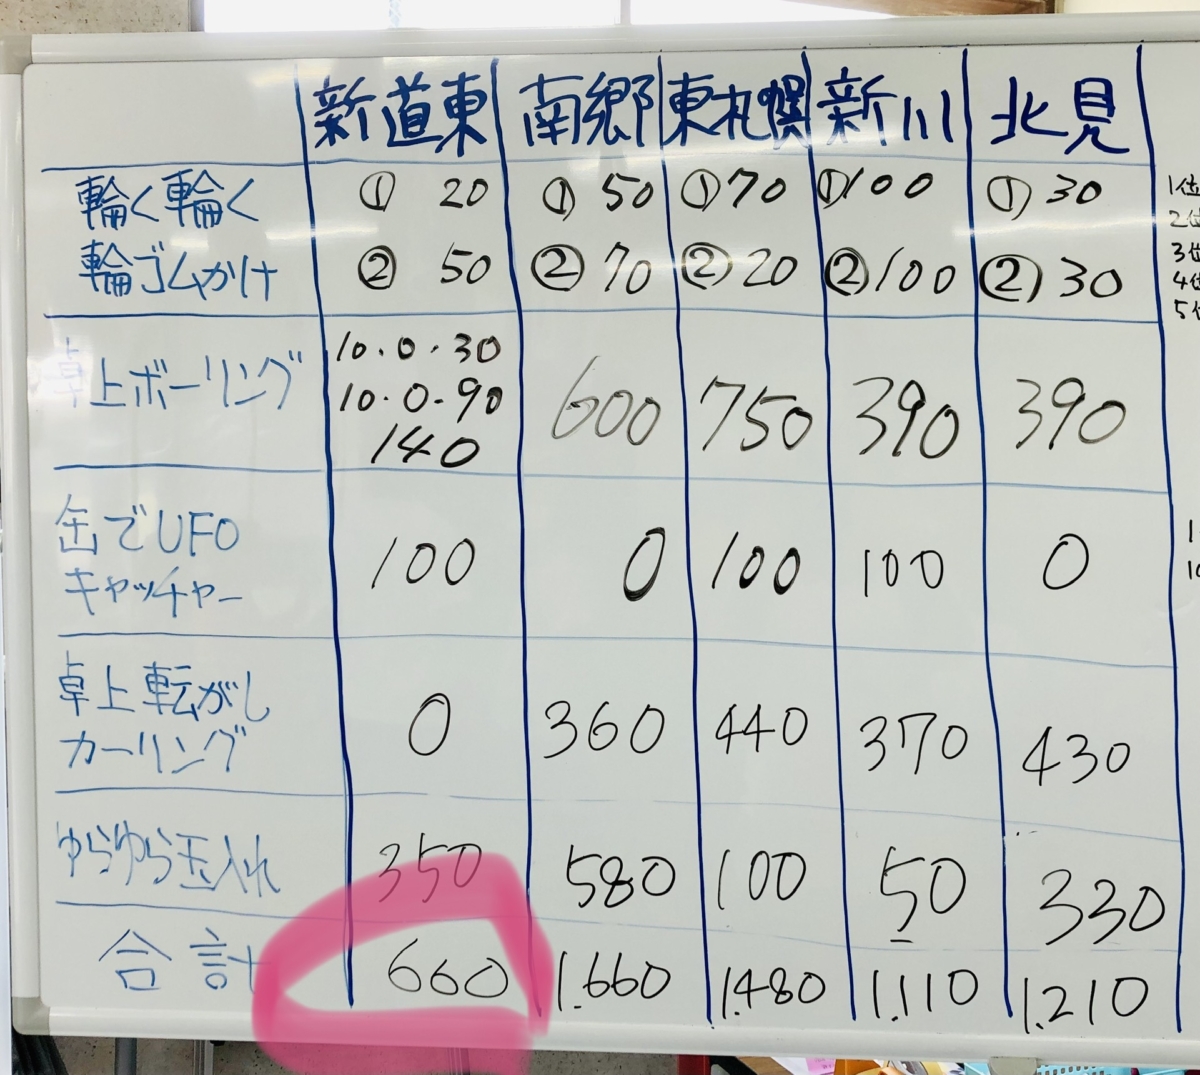 新道東 南郷 東札幌 新川 北見
輪く輪く ① 20 ① 50 ① 70 ① 100 ① 30
輪ゴムかけ ② 50 ② 70 ② 20 ② 100 ② 30
卓上ボーリング 10.0.30 600 750 390 390
10.0-90
140
缶でUFO 100 0 100 100 0
キャッチャー
卓上転がし 0 360 440 370 430
カーリング
ゆらゆら玉入れ 350 580 100 50 330
合計 660 1.660 1.480 1.110 1.210
1位
2位
3位
4位
5位